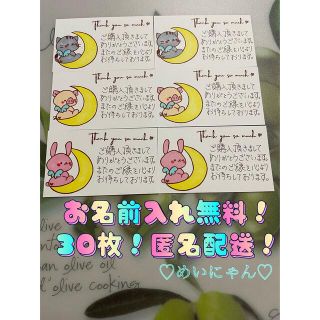 Thank you so much
ご購入頂きまして
ありがとうございます。
またのご縁を心より
お待ちしております。
Thank you so much
ご購入頂きまして
ありがとうございます。
またのご縁を心より
お待ちしております。
Thank you so much
ご購入頂きまして
ありがとうございます。
またのご縁を心より
お待ちしております。
Thank you so much
ご購入頂きまして
ありがとうございます。
またのご縁を心より
お待ちしております。
Thank you so much
ご購入頂きまして
ありがとうございます。
またのご縁を心より
お待ちしております。
Thank you so much
ご購入頂きまして
ありがとうございます。
またのご縁を心より
お待ちしております。
お名前入れ無料！
30枚！匿名配送！
♡めいにゃん♡
an olive oil
olive cooking